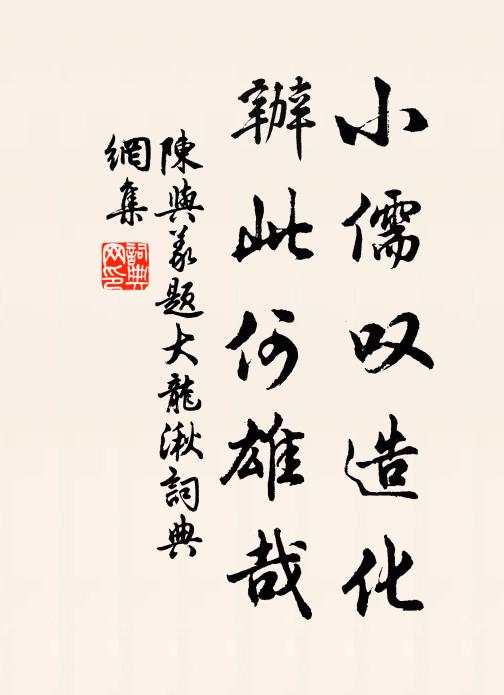 小儒叹造化
辦此何雄哉
陳與義題大龍湫詞典
網集
詞典
网印